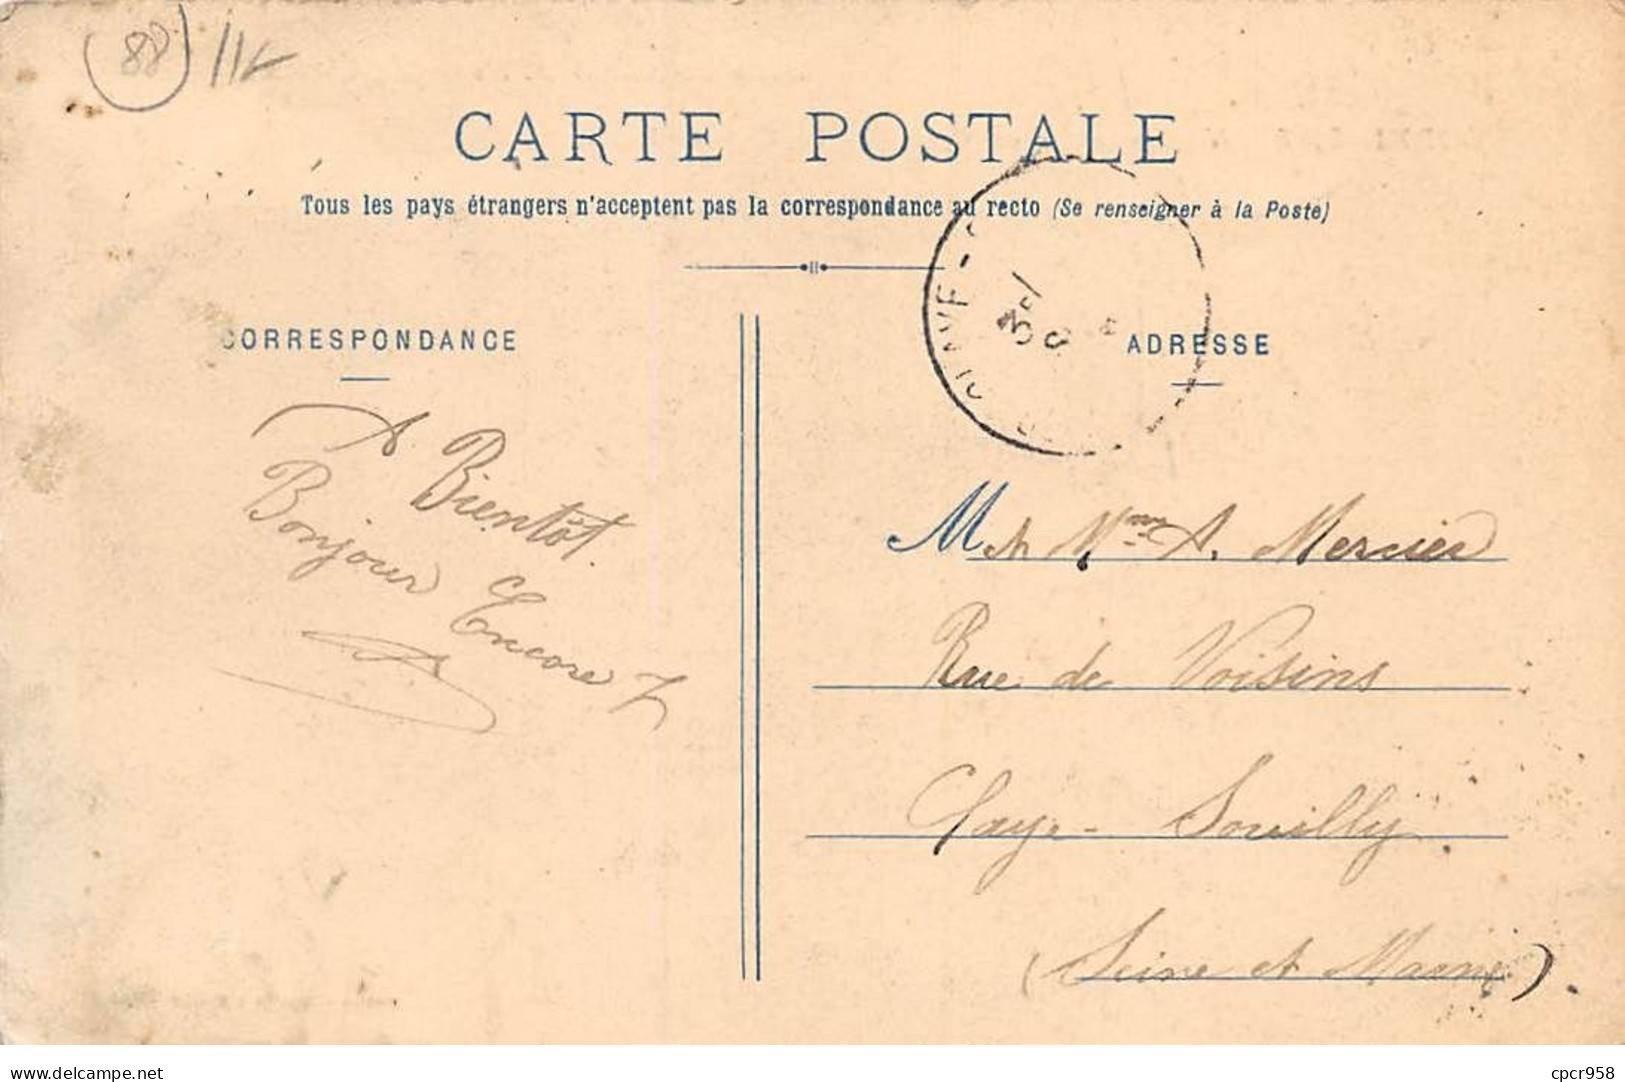 88
CARTE POSTALE
Tous les pays étrangers n'acceptent pas la correspondance au recto (Se renseigner à la Poste)
CORRESPONDANCE
A Bientôt.
Bonjour Encore
ADRESSE
M et Mme A. Mercier
Rue de Voisins
Claye-Souilly
(Seine et Marne).
delcampe.net
cpcr958